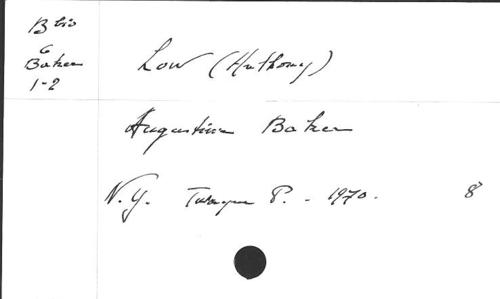 Bbio
6
Baker
1-2
Low (Anthony)
Augustine Baker
N.Y. Twayne P. - 1970. 8